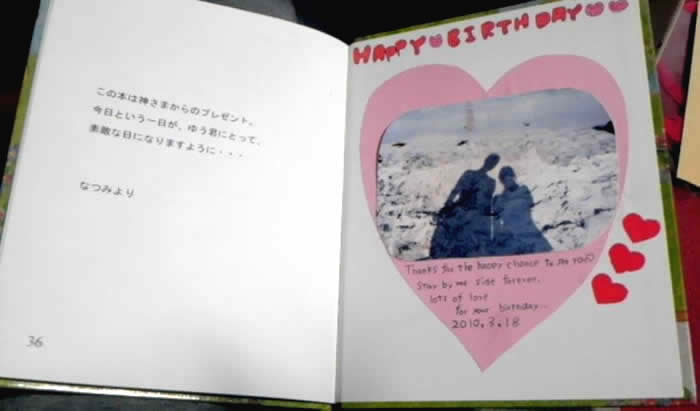 この本は神さまからのプレゼント。
今日という一日が、ゆう君にとって、
素敵な日になりますように・・・
なつみより
36
HAPPY BIRTH DAY
Thanks for the happy chance to see you
Stay by me side forever.
lots of love
for your birthday...
2010.3.18